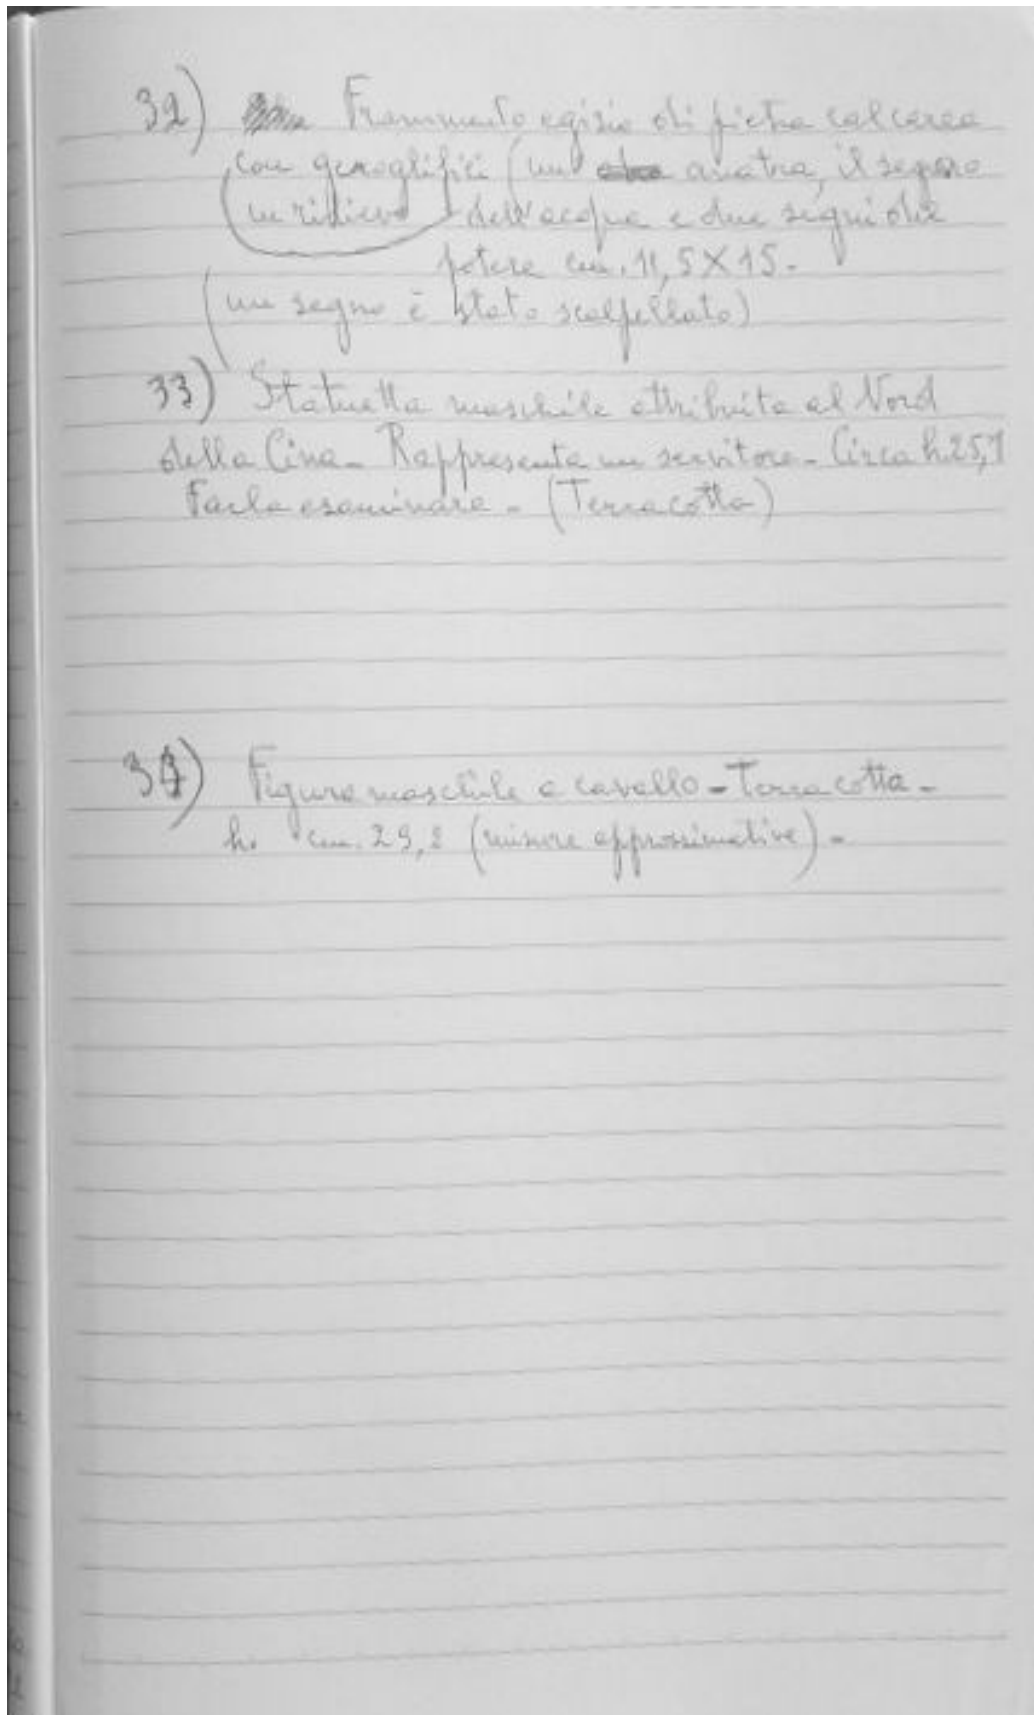 32) Frammento egizio di pietra calcarea
con geroglifici (un anatra, il segno
in rilievo dell'acqua e due segni del
potere cm. 11,5 X 15.
(un segno è stato scalpellato)
33) Statuetta maschile attribuita al Nord
della Cina - Rappresenta un servitore - Circa h. 25,1
Farla esaminare - (Terracotta)
34) Figura maschile a cavallo - Terracotta -
h. cm. 29,2 (misure approssimative) -